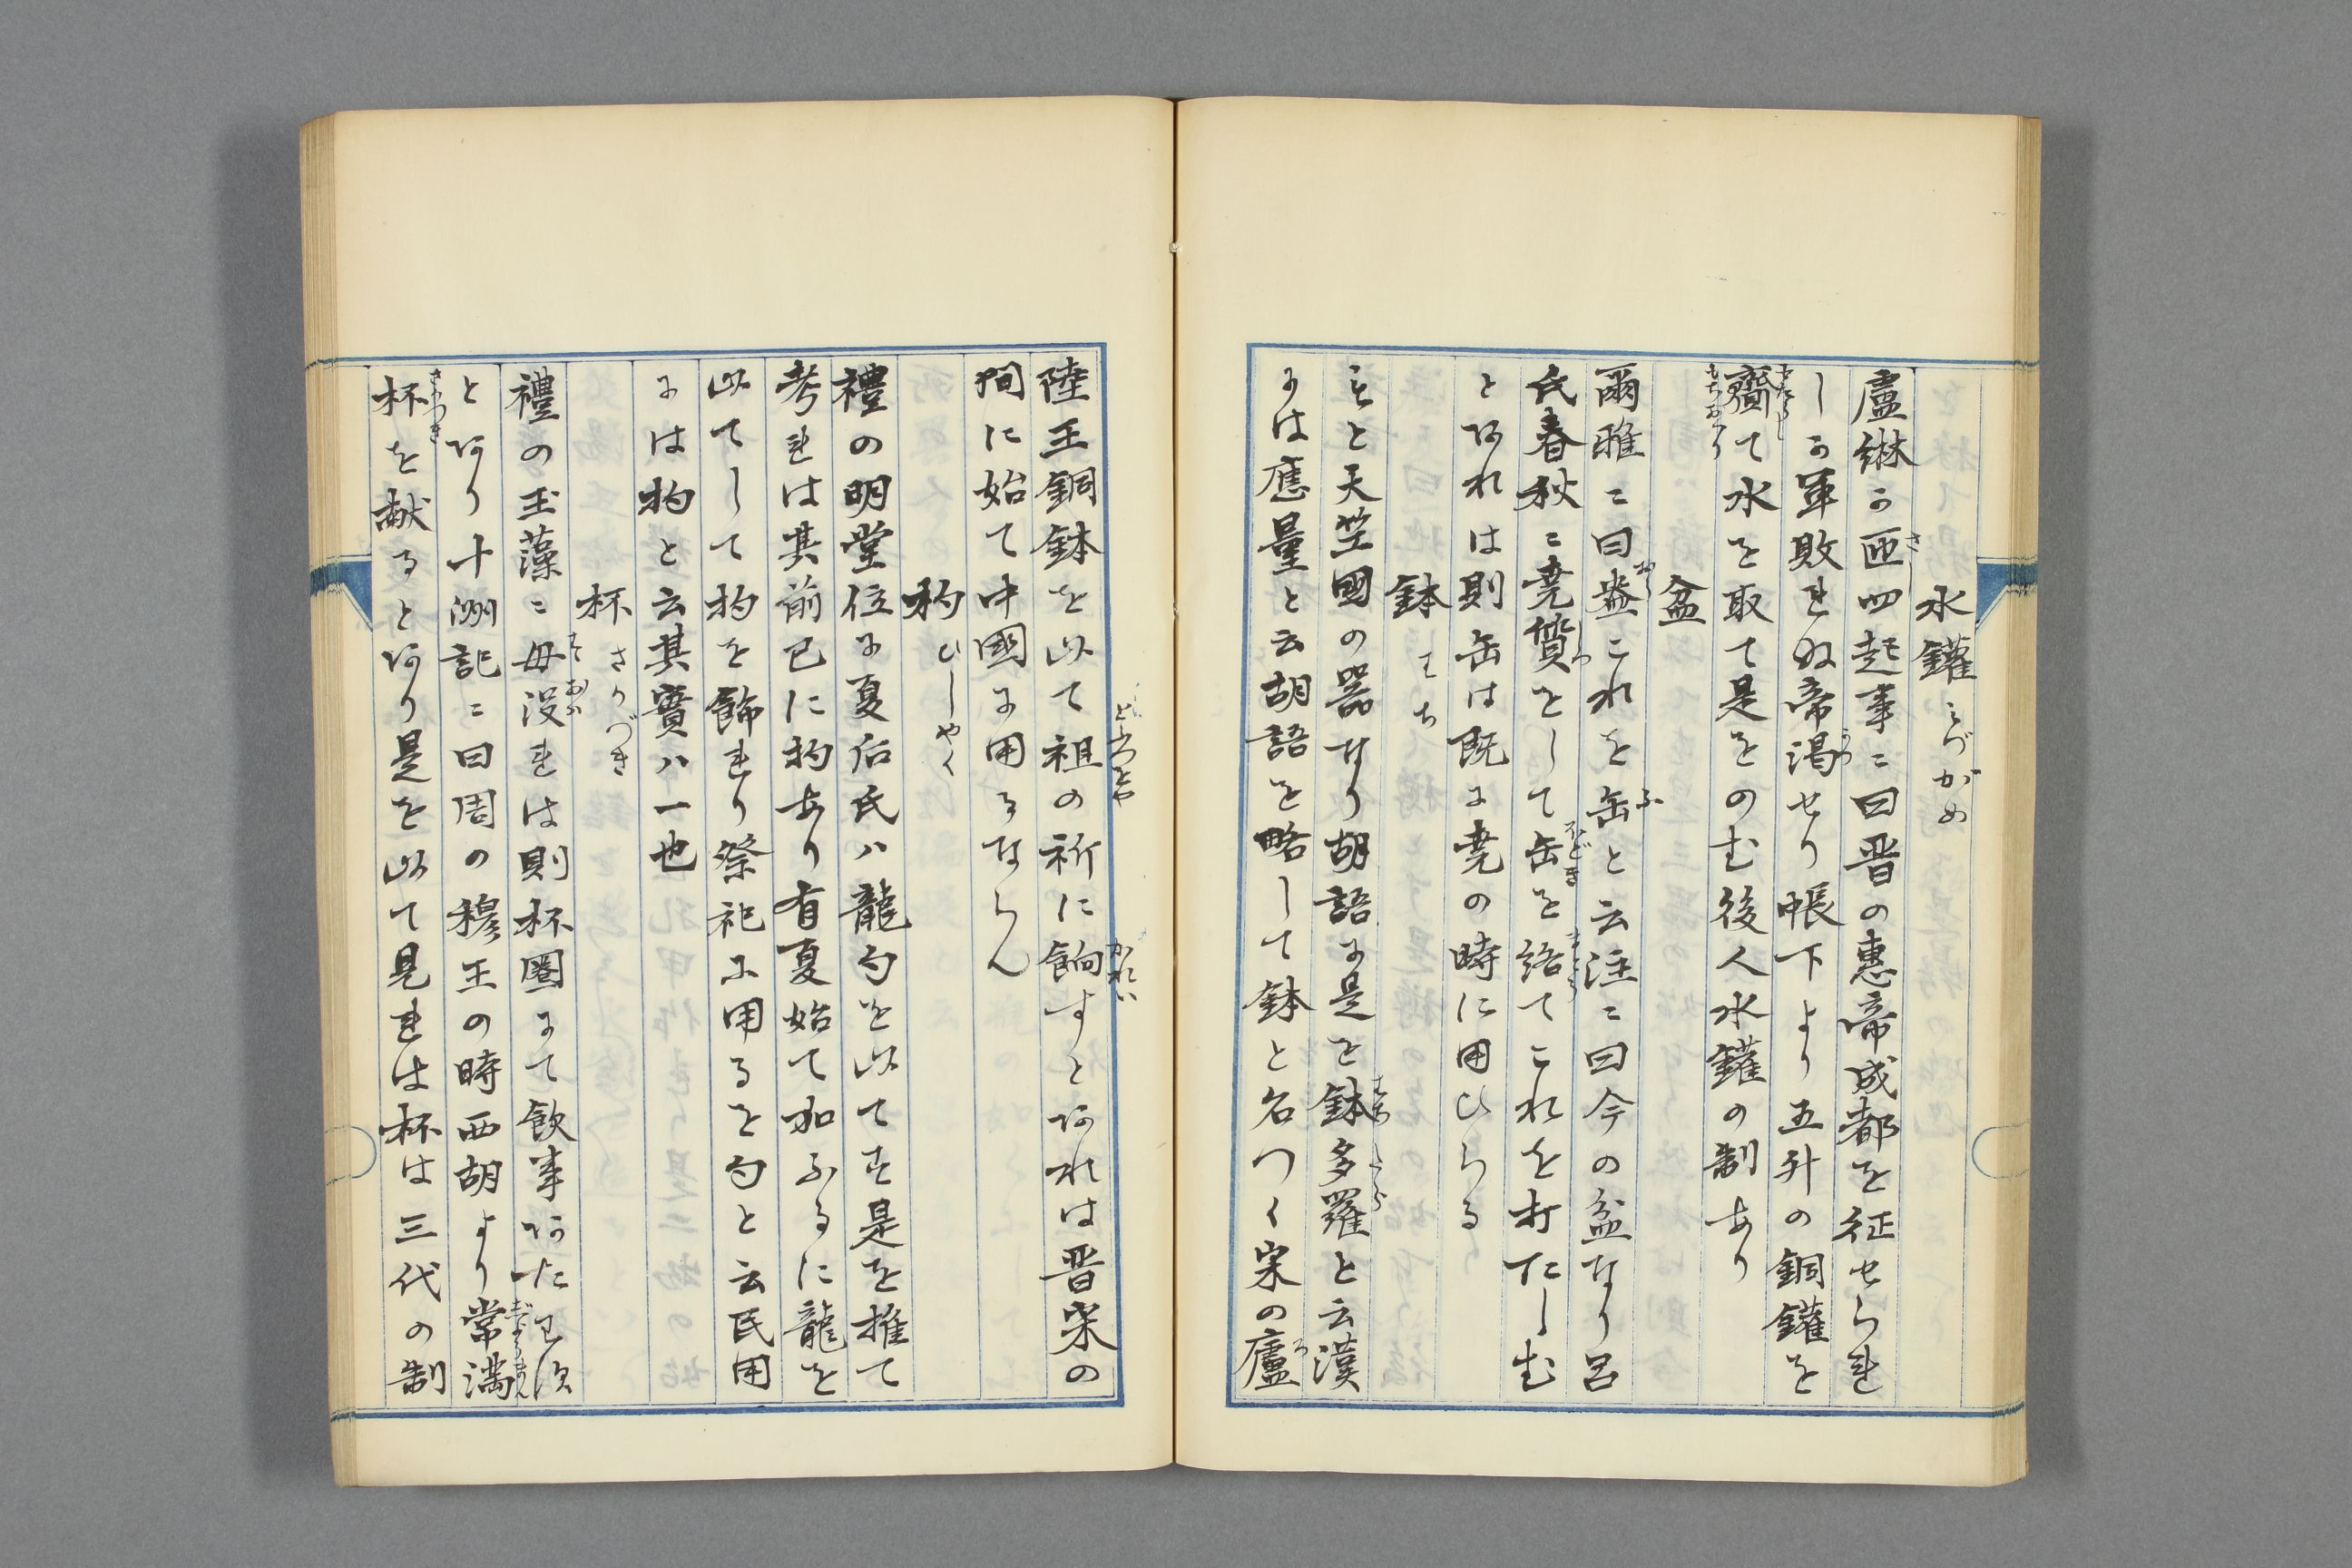 水鑵 みづがめ
盧綝か匝四起事ニ曰晋の惠帝成都を征せられ
しか軍敗れぬ帝渇せり帳下より五升の銅鑵を
齎て水を取て是をのむ後人水鑵の制あり
盆
爾雅ニ曰盎これを缶と云注ニ曰今の盆なり呂
氏春秋ニ堯質をして缶を絡てこれを打たしむ
とあれは則缶は既に堯の時に用ひらる
鉢 はち
もと天竺國の器なり胡語に是を鉢多羅と云漢
には應量と云胡語を略して鉢と名つく宋の廬
陸王銅鉢を以て祖の祈に餉すとあれは晋宋の
間に始て中國に用るならん
杓 ひしやく
禮の明堂位に夏后氏ハ龍勺を以てす是を推て
考れは其前已に杓あり有夏始て加ふるに龍を
以てして杓を餙れり祭祀に用るを勺と云民用
には杓と云其實ハ一也
杯 さかづき
禮の玉藻ニ母没れは則杯圏にて飲事あたわ須
とあり十洲記ニ曰周の穆王の時西胡より常満
杯を献るとあり是を以て見れは杯は三代の制